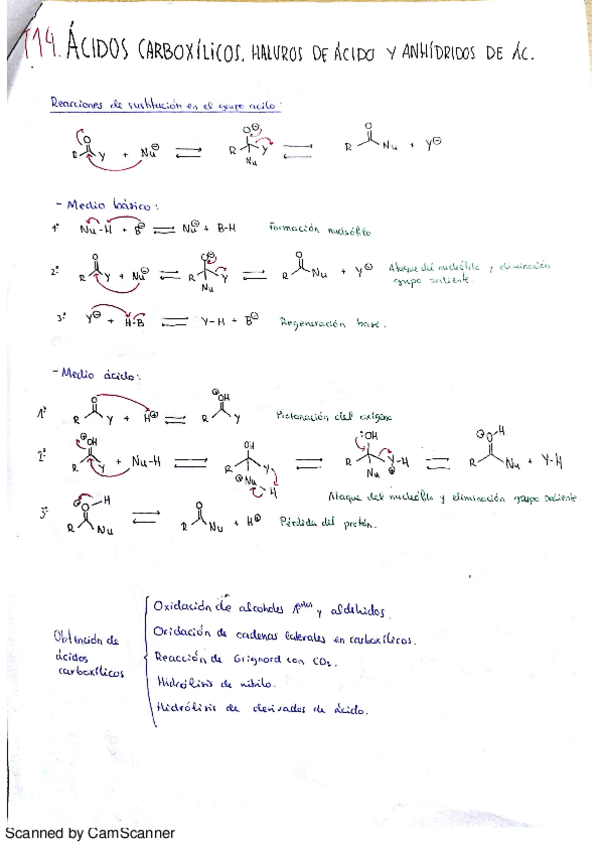 T14. ÁCIDOS CARBOXÍLICOS, HALUROS DE ÁCIDO Y ANHÍDRIDOS DE ÁC.
Reacciones de sustitución en el grupo acilo:
O O⊖ O
R Y + Nu⊖ ⇌ R Y ⇌ R Nu + Y⊖
Nu
- Medio básico:
1º Nu-H + B⊖ ⇌ Nu⊖ + B-H Formación nucleófilo
O O⊖ O
2º R Y + Nu⊖ ⇌ R Y ⇌ R Nu + Y⊖ Ataque del nucleófilo y eliminación
Nu grupo saliente.
3º Y⊖ + H-B ⇌ Y-H + B⊖ Regeneración base.
- Medio ácido:
O ⊕OH
1º R Y + H⊕ ⇌ R Y Protonación del oxígeno
⊕OH OH :OH ⊕O-H
2º R Y + Nu-H ⇌ R Y ⇌ R Y-H ⇌ R Nu + Y-H
⊕Nu H Nu ⊕
Ataque del nucleófilo y eliminación grupo saliente.
⊕O-H O
3º R Nu ⇌ R Nu + H⊕ Pérdida del protón.
Oxidación de alcoholes 1arios y aldehídos.
Obtención de Oxidación de cadenas laterales en carboxílicos.
ácidos Reacción de Grignord con CO₂.
carboxílicos Hidrólisis de nitrilo.
Hidrólisis de derivados de ácido.
Scanned by CamScanner